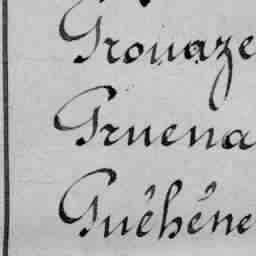 Grouaze
Gruena
Guéhéne